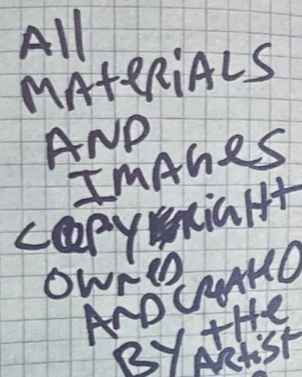 All
MAteRiALS
AND
IMAGES
COPYRiGHt
OWNED
AND CREATED
BY tHe
ARtiSt